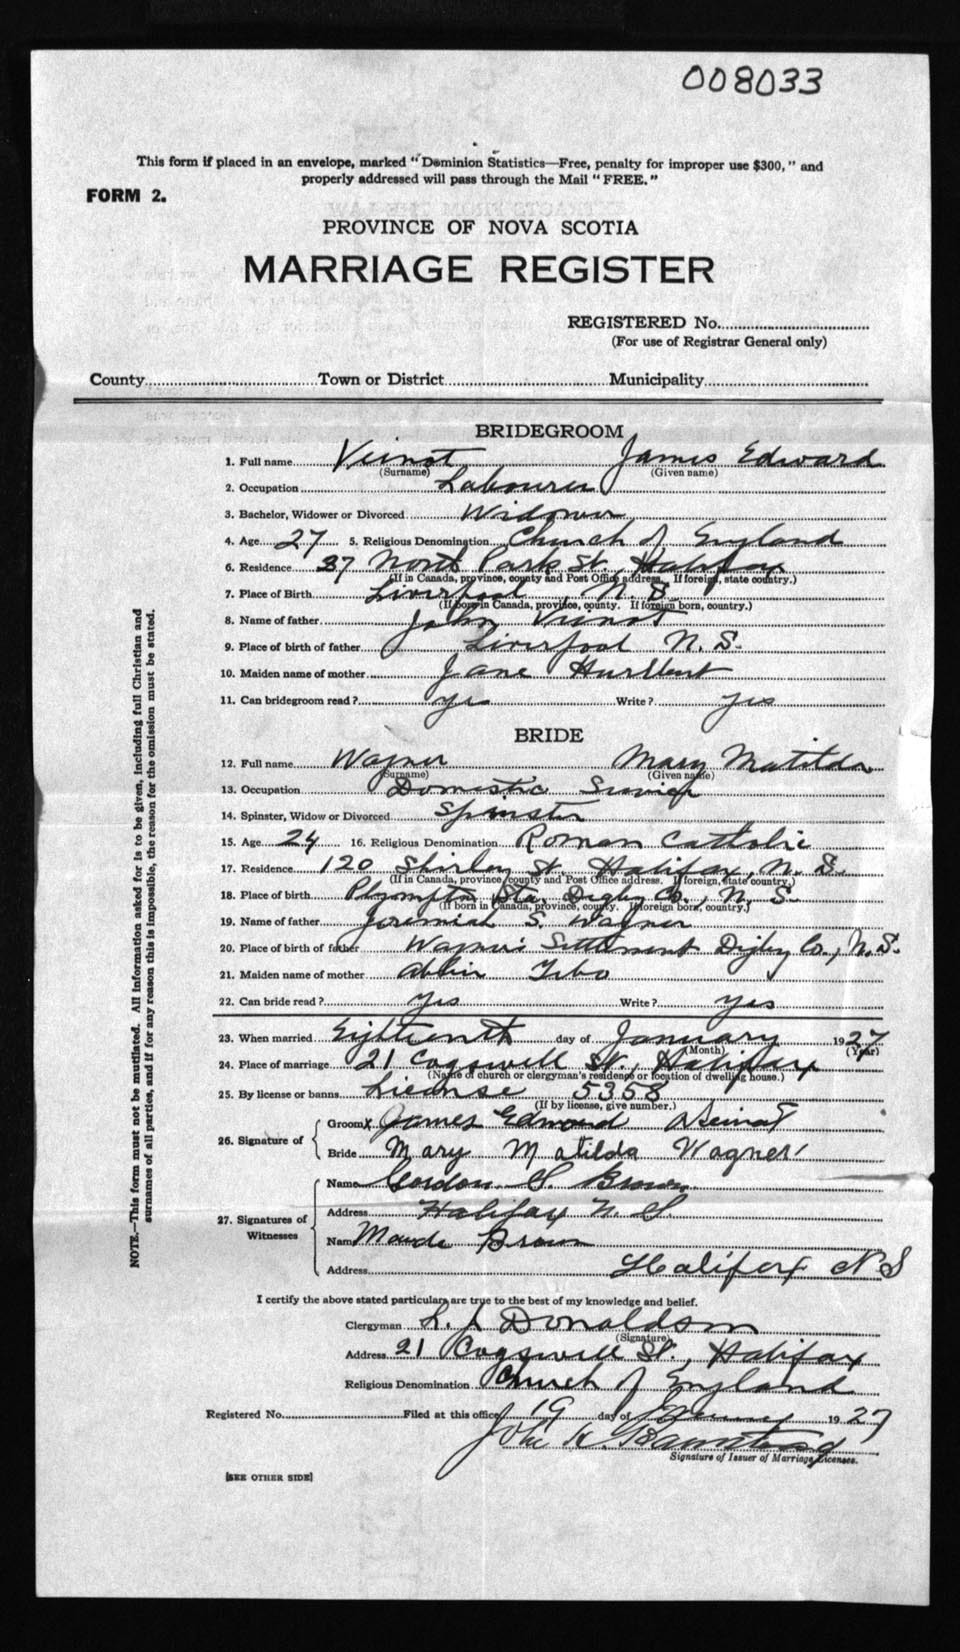 008033
This form if placed in an envelope, marked "Dominion Statistics—Free, penalty for improper use $300," and
properly addressed will pass through the Mail "FREE."
FORM 2.
PROVINCE OF NOVA SCOTIA
MARRIAGE REGISTER
REGISTERED No.
(For use of Registrar General only)
County Town or District Municipality
BRIDEGROOM
1. Full name Veinot James Edward
(Surname) (Given name)
2. Occupation Labourer
3. Bachelor, Widower or Divorced Widower
4. Age 27 5. Religious Denomination Church of England
6. Residence 37 North Park St., Halifax
(If in Canada, province, county and Post Office address. If foreign, state country.)
7. Place of Birth Liverpool N. S.
(If born in Canada, province, county. If foreign born, country.)
8. Name of father John Veinot
9. Place of birth of father Liverpool N. S.
10. Maiden name of mother Jane Hurlbert
11. Can bridegroom read? yes Write? yes
BRIDE
12. Full name Wagner Mary Matilda
(Surname) (Given name)
13. Occupation Domestic Service
14. Spinster, Widow or Divorced Spinster
15. Age 24 16. Religious Denomination Roman Catholic
17. Residence 120 Shirley St. Halifax, N. S.
(If in Canada, province, county and Post Office address. If foreign, state country.)
18. Place of birth Plympton Sta. Digby Co., N. S.
(If born in Canada, province, county. If foreign born, country.)
19. Name of father Jeremiah S. Wagner
20. Place of birth of father Wagner's Settlement Digby Co., N. S.
21. Maiden name of mother Abbie Tebo
22. Can bride read? yes Write? yes
23. When married Eighteenth day of January 1927
(Month) (Year)
24. Place of marriage 21 Cogswell St., Halifax
(Name of church or clergyman's residence or location of dwelling house.)
25. By license or banns License 5358
(If by license, give number.)
26. Signature of
Groom x James Edmond Veinot
Bride Mary Matilda Wagner
27. Signatures of Witnesses
Name Gordon S. Brown
Address Halifax N. S
Name Maude Brown
Address Halifax N S
I certify the above stated particulars are true to the best of my knowledge and belief.
Clergyman L. J. Donaldson
(Signature)
Address 21 Cogswell St., Halifax
Religious Denomination Church of England
Registered No. Filed at this office 19 day of January 1927
John H.
Signature of Issuer of Marriage Licenses.
[SEE OTHER SIDE]
NOTE.—This form must not be mutilated. All information asked for is to be given, including full Christian and
surnames of all parties, and if for any reason this is impossible, the reason for the omission must be stated.